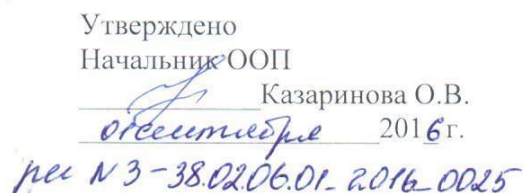 Утверждено
Начальник ООП
Казаринова О.В.
01 сентября 2016 г.
рег N 3-38.0206.01_2016_0025